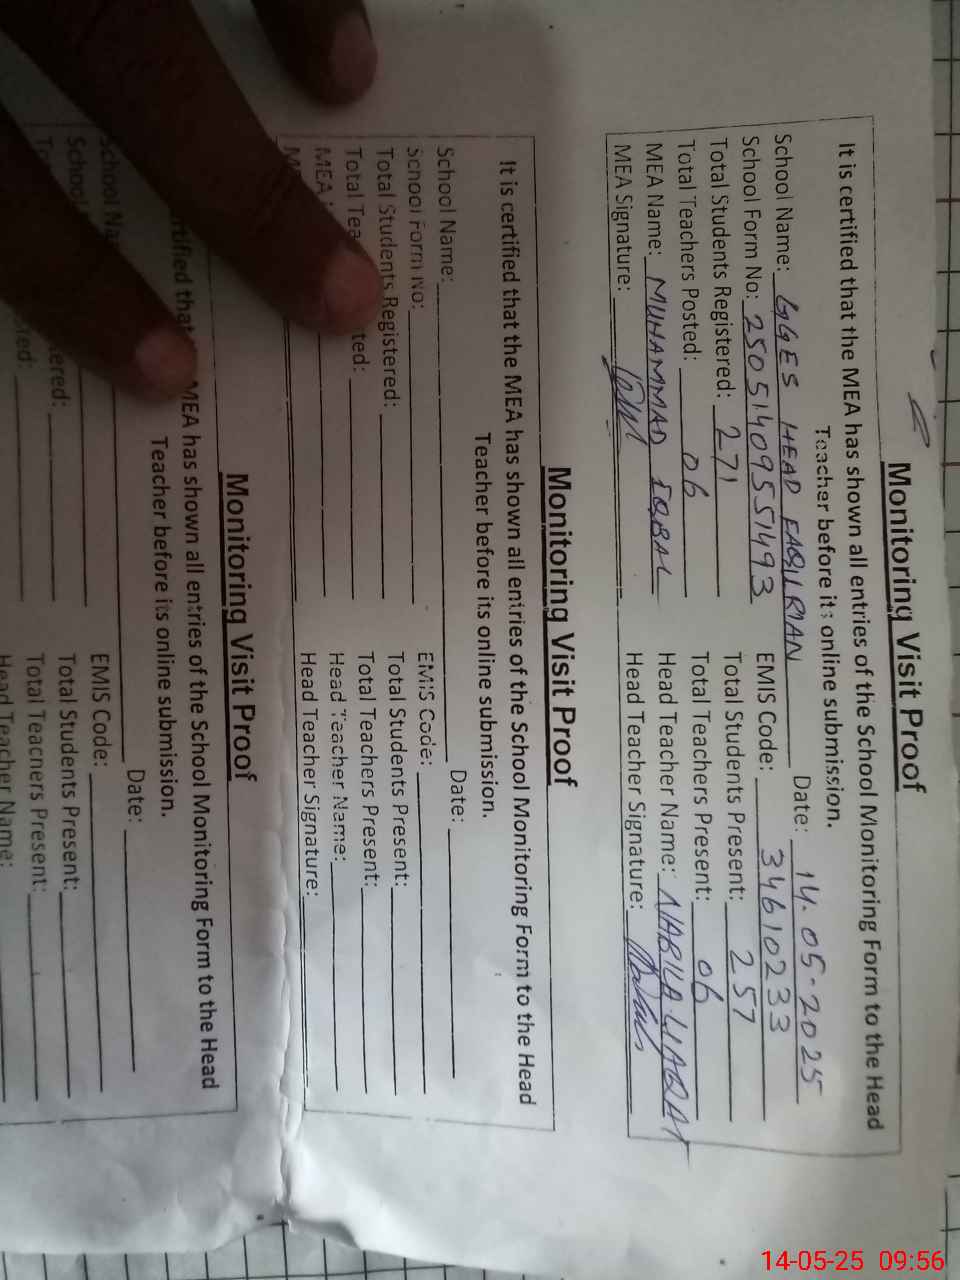 Monitoring Visit Proof
It is certified that the MEA has shown all entries of the School Monitoring Form to the Head
Teacher before its online submission.
School Name: GGES HEAD FAQIRIAN Date: 14.05-2025
School Form No: 25051409551493 EMIS Code: 34610233
Total Students Registered: 271 Total Students Present: 257
Total Teachers Posted: 06 Total Teachers Present: 06
MEA Name: MUHAMMAD IQBAL Head Teacher Name: NABILA LIAQAT
MEA Signature: Head Teacher Signature:
Monitoring Visit Proof
It is certified that the MEA has shown all entries of the School Monitoring Form to the Head
Teacher before its online submission.
School Name: Date:
School Form No: EMIS Code:
Total Students Registered: Total Students Present:
Total Teachers Present:
MEA Head Teacher Name:
Head Teacher Signature:
Monitoring Visit Proof
that MEA has shown all entries of the School Monitoring Form to the Head
Teacher before its online submission.
School Date:
School EMIS Code:
Total Students Present:
Total Teachers Present:
Head Teacher Name:
14-05-25 09:56